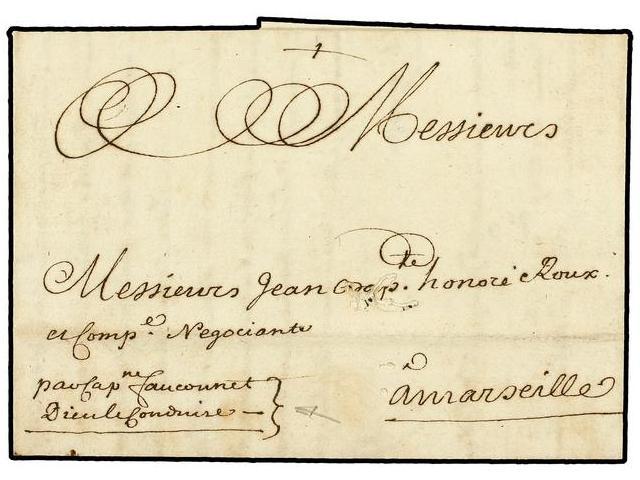 Messieurs
Messieurs Jean Bapte. honoré Roux.
et Compe. Negociants
par Capne faucounet
Dieu le Conduise
a marseille